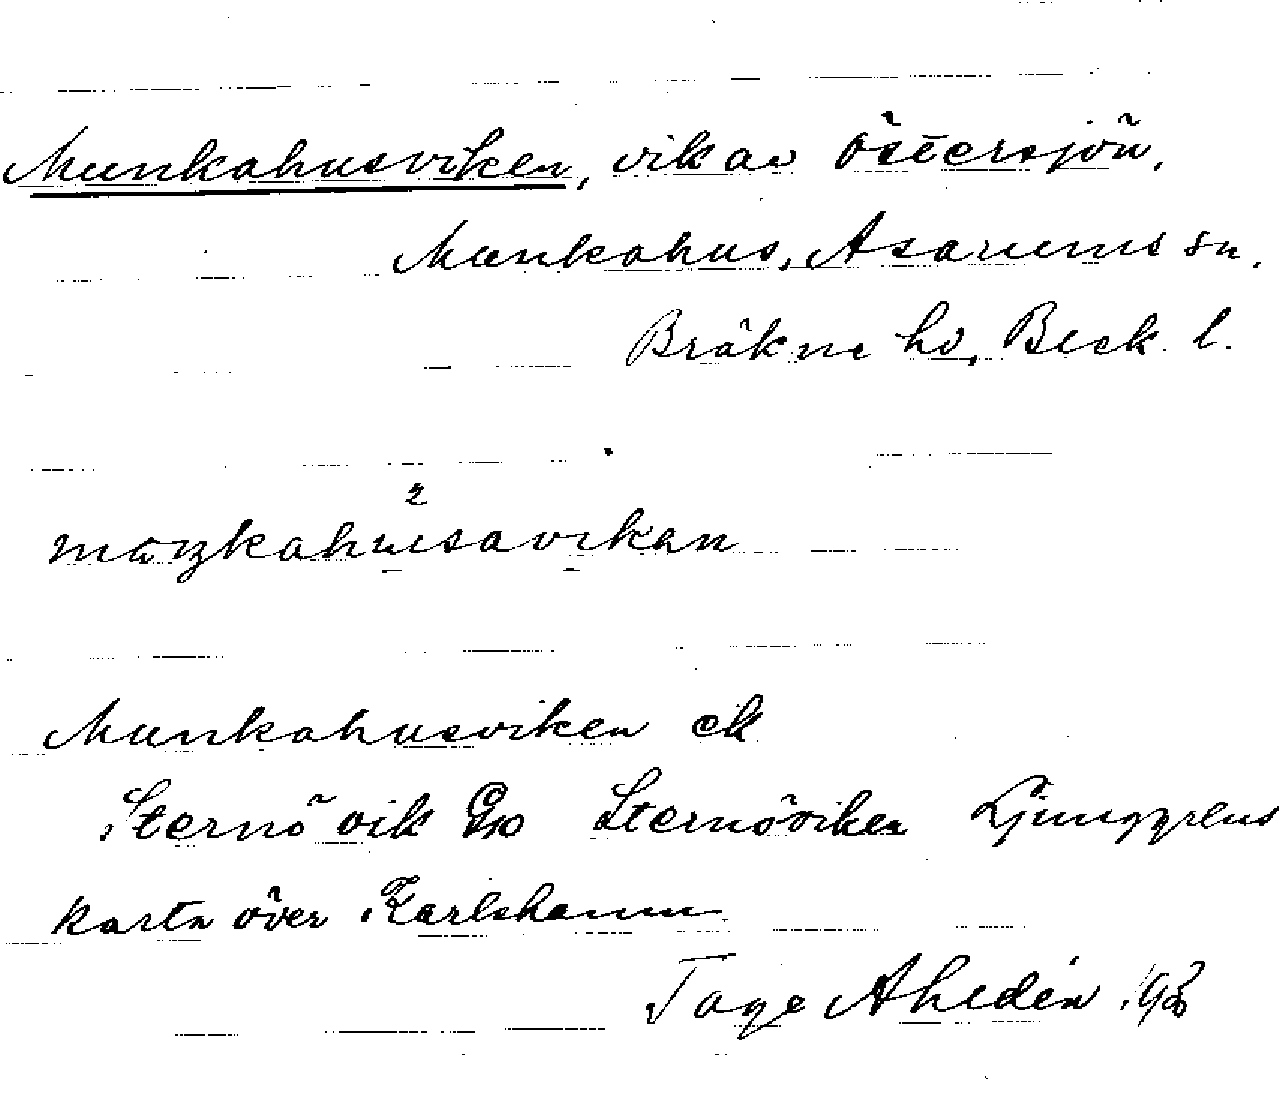 Munkahusviken, vik av Östersjön,
Munkahus, Asarums sn.
Bräkne hd, Bleck. l.
Munkahusviken ek
Sternövik Gso Sternöviken Ljunggrens
karta över Karlshamn
Tage Ahldén